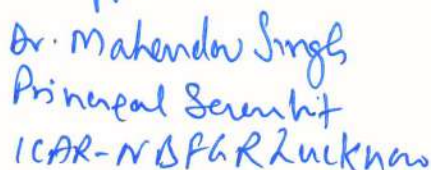 Dr. Mahender Singh
Principal Scientist
ICAR-NBFGR Lucknow